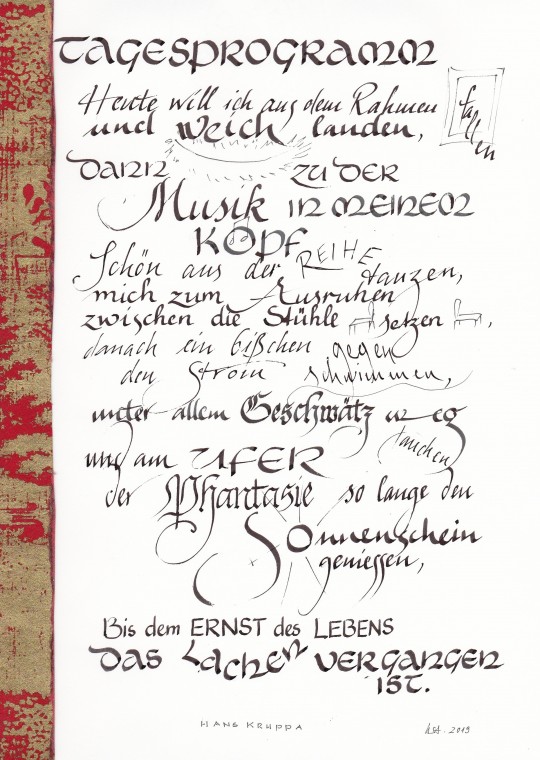 TAGESPROGRAMM
Heute will ich aus dem Rahmen fallen
und weich landen,
dann zu der
Musik in meinem
Kopf
Schön aus der REIHE tanzen,
mich zum Ausruhen
zwischen die Stühle setzen,
danach ein bißchen gegen
den Strom schwimmen,
unter allem Geschwätz weg
tauchen
und am UFER
der Phantasie so lange den
Sonnenschein
geniessen,
Bis dem ERNST des LEBENS
das Lachen vergangen
ist.
HANS KRUPPA
2019